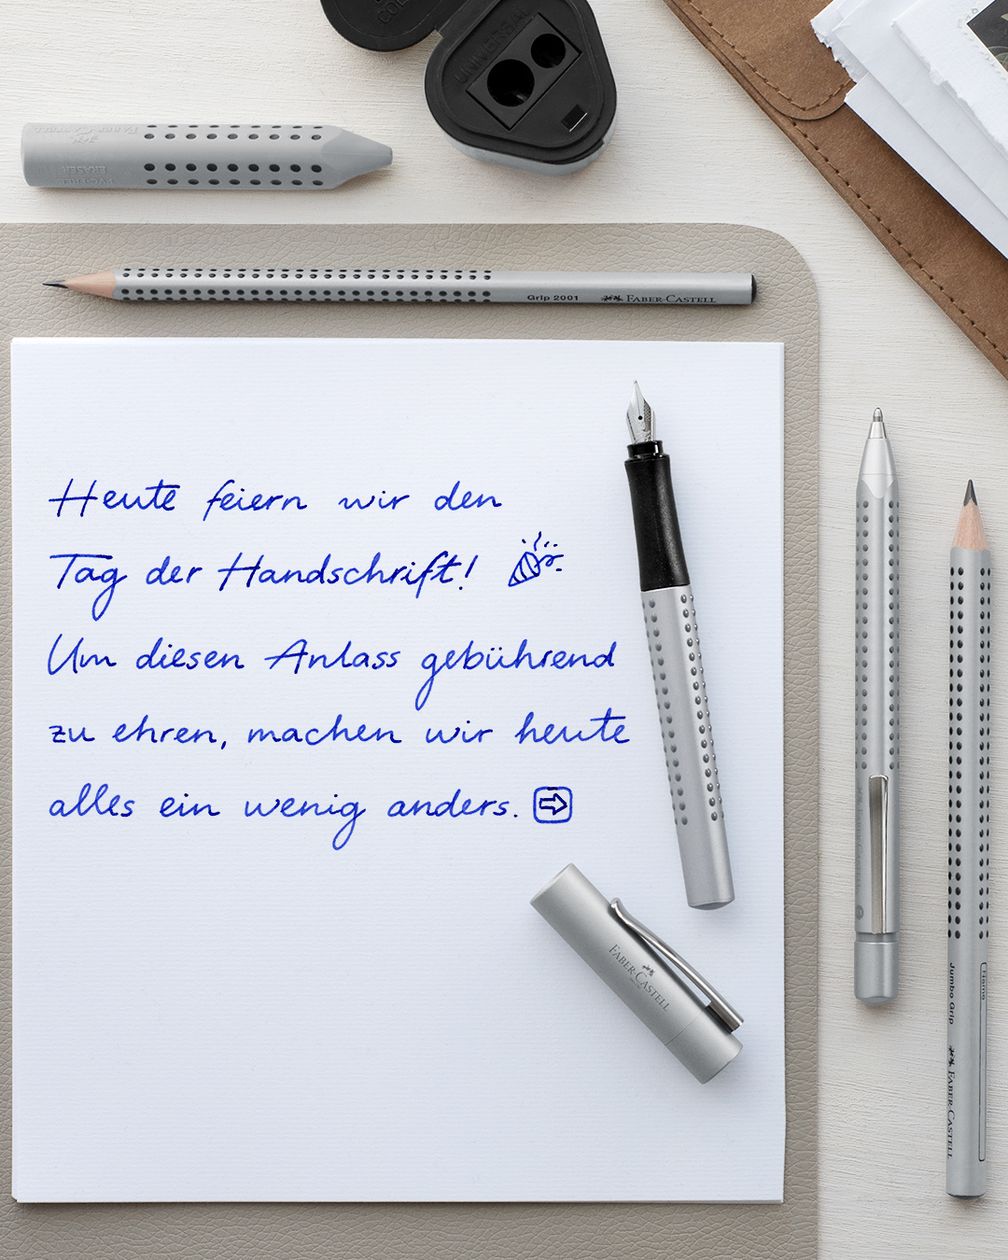 UNIVERSAL
FABER-CASTELL
ERASER
Grip 2001 FABER-CASTELL
Heute feiern wir den
Tag der Handschrift!
Um diesen Anlass gebührend
zu ehren, machen wir heute
alles ein wenig anders. ➡
FABER-CASTELL
Name
Jumbo Grip FABER-CASTELL